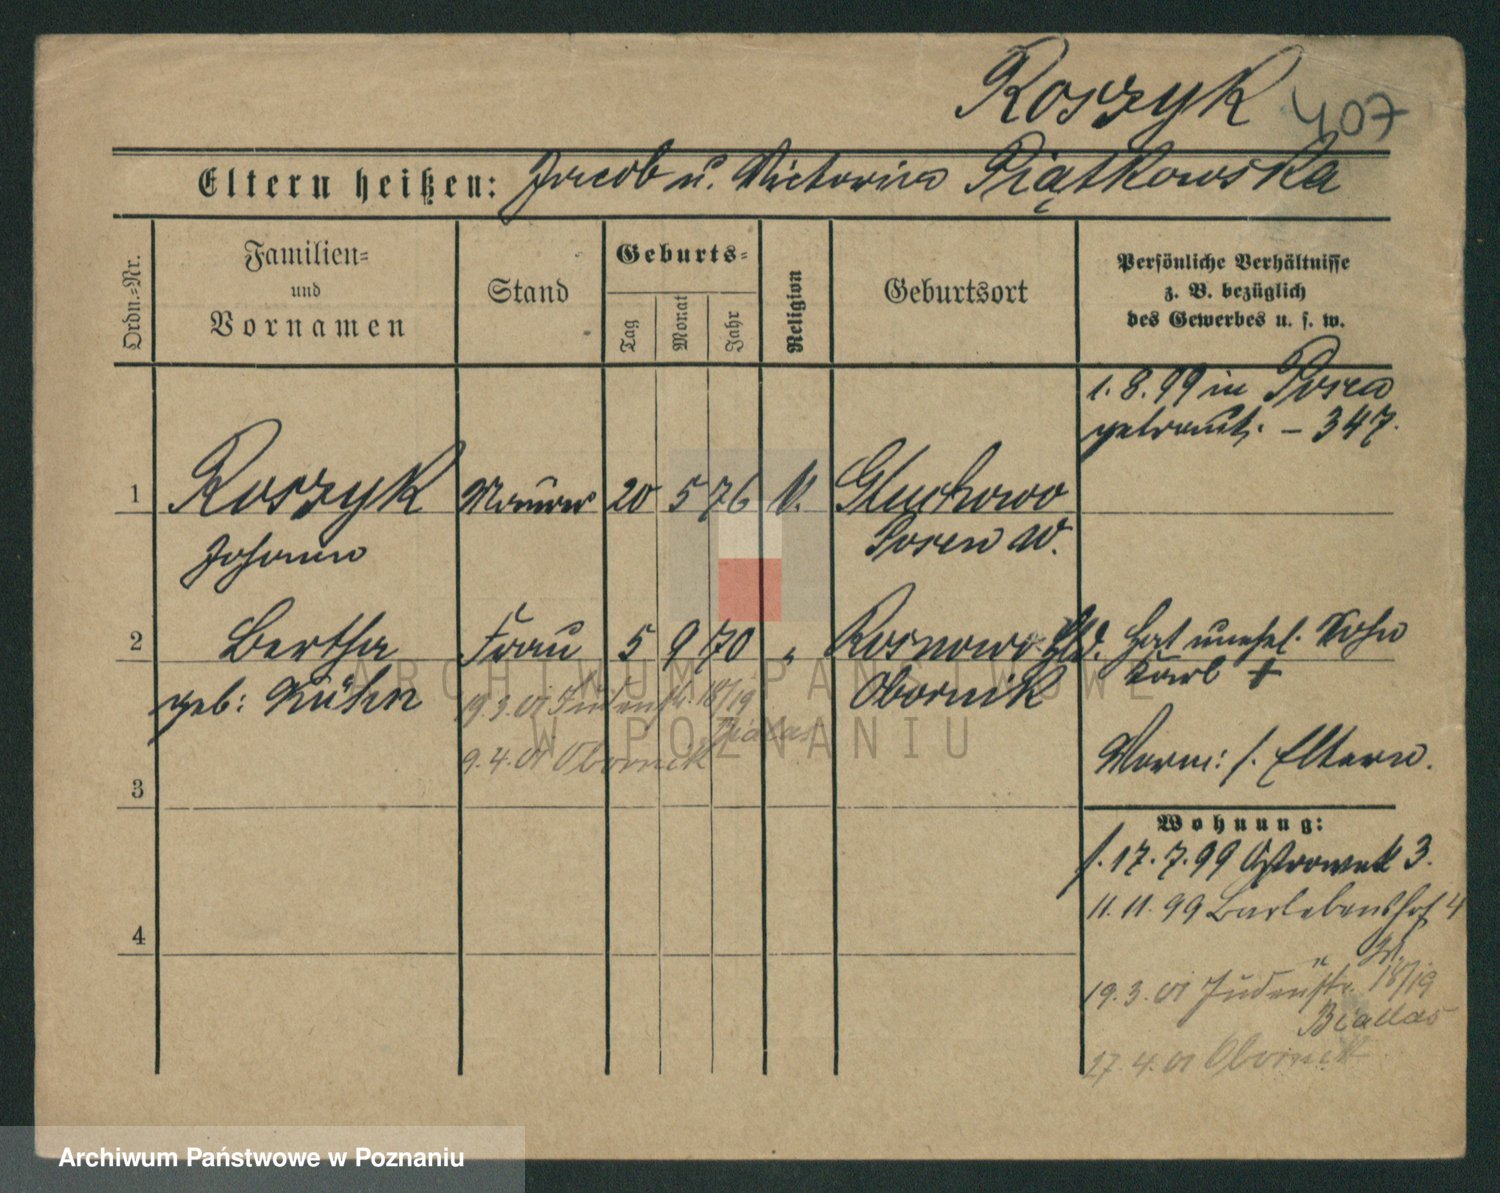 Roszyk 407
Eltern heißen: Jacob u. Victoria Piątkowska
Ordn.-Nr.
Familien-
und
Vornamen
Stand
Geburts-
Tag
Monat
Jahr
Religion
Geburtsort
Persönliche Verhältnisse
z. B. bezüglich
des Gewerbes u. s. w.
1. 8. 99 in Posen
getraut. – 347.
1 Roszyk Maurer 20 5 76 Gluchowo
Johann Posen W.
2 Bertha Frau 5 9 70 " Rosnowo Hld. hat unehel. Sohn
Karl +
geb: Kühn Obornik
19.3.01 Judenstr. 18/19
Biallas
9.4.01 Obornik
Worm: s. Eltern.
3
Wohnung:
17. 7. 99 Ostrowek 3.
11. 11. 99 Barlebenshof 4
4
19. 3. 01 Judenstr. 18/19
Biallas
27. 4. 01 Obornik
ARCHIWUM PAŃSTWOWE
W POZNANIU
Archiwum Państwowe w Poznaniu